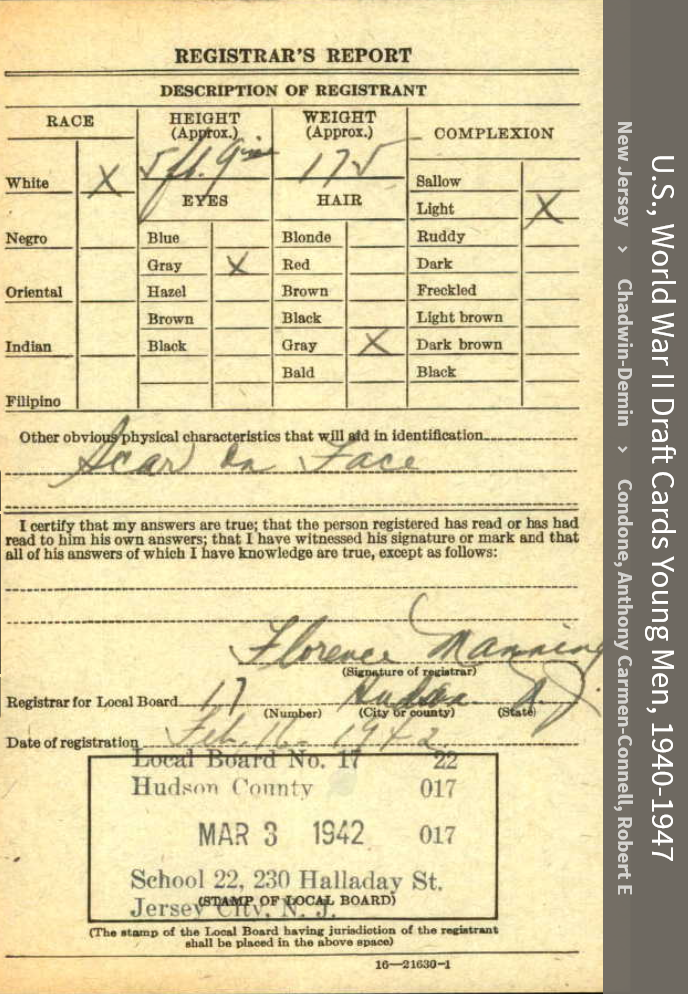 REGISTRAR'S REPORT
DESCRIPTION OF REGISTRANT
RACE
HEIGHT
(Approx.)
WEIGHT
(Approx.)
COMPLEXION
5 ft. 9 in
175
White X
EYES
HAIR
Sallow
Light X
Negro
Blue
Blonde
Ruddy
Gray X
Red
Dark
Oriental
Hazel
Brown
Freckled
Brown
Black
Light brown
Indian
Black
Gray X
Dark brown
Bald
Black
Filipino
Other obvious physical characteristics that will aid in identification
Scar on Face
I certify that my answers are true; that the person registered has read or has had
read to him his own answers; that I have witnessed his signature or mark and that
all of his answers of which I have knowledge are true, except as follows:
Florence Manning
(Signature of registrar)
Registrar for Local Board 17 Hudson N.J.
(Number) (City or county) (State)
Date of registration Feb. 16 - 1942
Local Board No. 17 22
Hudson County 017
MAR 3 1942 017
School 22, 230 Halladay St.
(STAMP OF LOCAL BOARD)
Jersey City, N. J.
(The stamp of the Local Board having jurisdiction of the registrant
shall be placed in the above space)
16—21630-1
U.S., World War II Draft Cards Young Men, 1940-1947
New Jersey > Chadwin-Demin > Condone, Anthony Carmen-Connell, Robert E